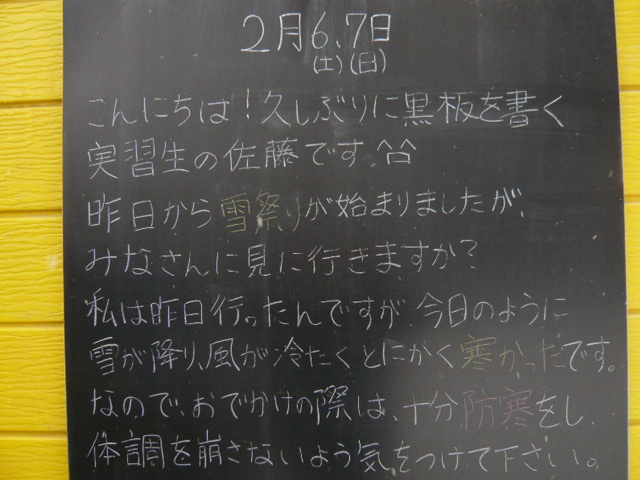 2月6、7日
(土)(日)
こんにちは!久しぶりに黒板を書く
実習生の佐藤です^凸^
昨日から雪祭りが始まりましたが、
みなさんに見に行きますか?
私は昨日行ったんですが、今日のように
雪が降り、風が冷たくとにかく寒かったです。
なので、おでかけの際は、十分防寒をし、
体調を崩さないよう気をつけて下さい。